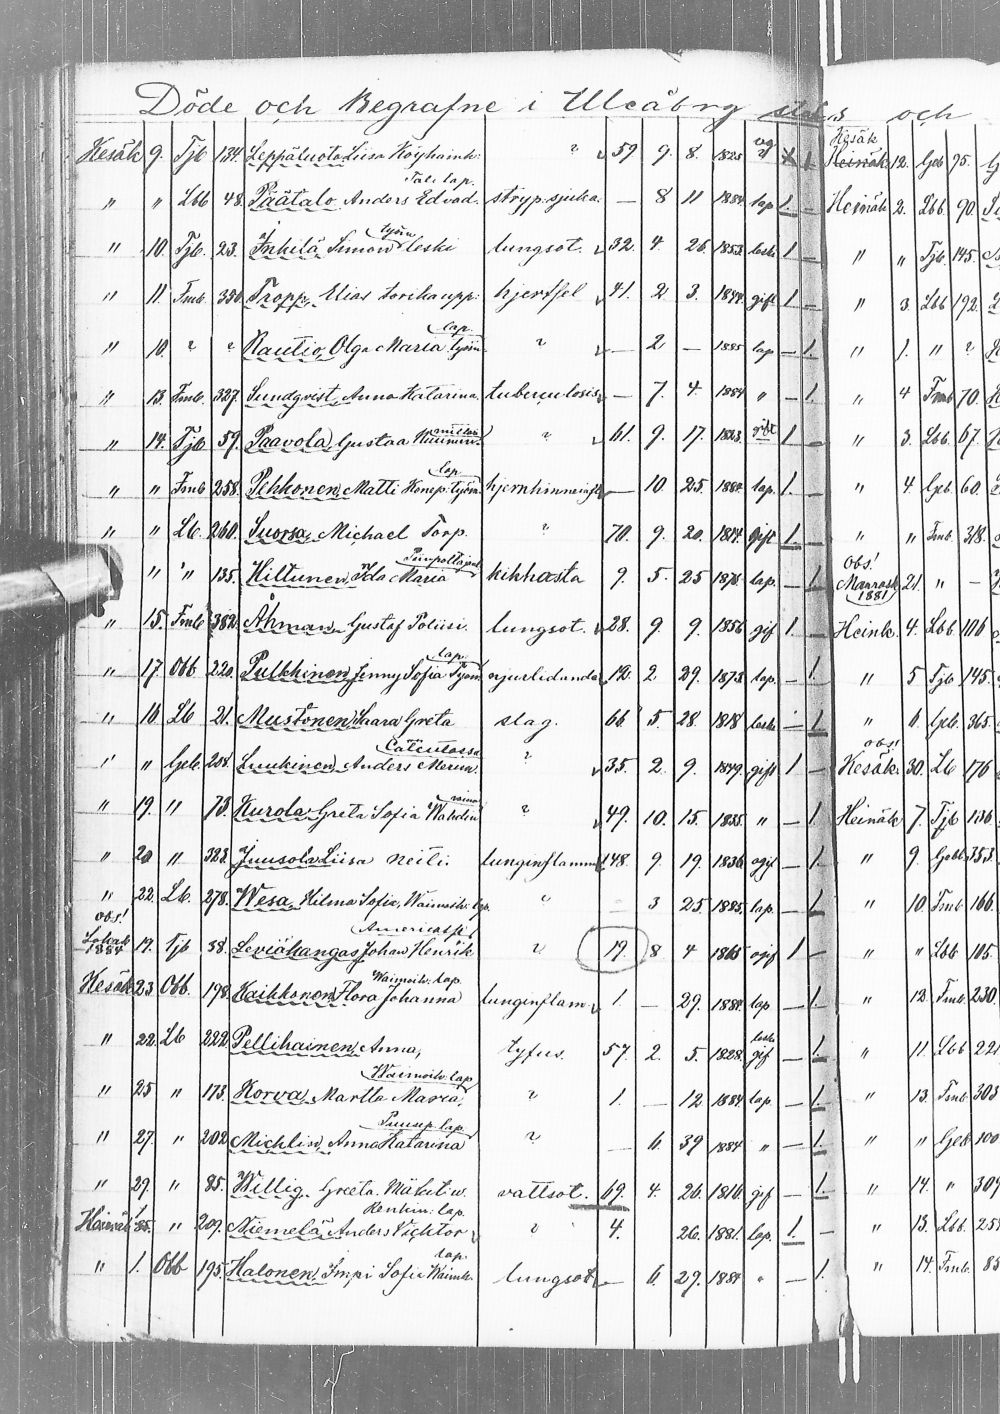 Döde och Begrafne i Uleåbrg stads och
Kesäk 9. Tjb 134. Leppäluoto Liisa Köyhäinh: " 59 9. 8. 1825 1.
Tali lap.
" " Lbb 48. Päätalo Anders Edvad. stryp.sjuka. — 8 11 1884 lap 1. —
työm
" 10. Tjb. 23. Inkelä Simon leski lungsot. 32. 4. 26. 1853. leski 1 —
" 11. Fmb. 350 Tropp, Elias torikaupp: hjertfel 41. 2 3. 1844. gift 1. —
lap.
" 10. " " Rautio, Olga Maria työm " — 2 — 1885 lap — 1.
" 13. Fmb. 327 Sundqvist, Anna Katarina. tuberculosis — 7. 4. 1884 " — 1.
" 14. Tjb 59. Paavola, Gustaa " 61. 9. 17. 1823. gift 1 —
lap
" " Fmb 258. Pekkonen, Matti Konep. työm. — 10. 25. 1884. lap. 1. —
" " Lb. 260. Suorsa, Michael Torp. " 70. 9. 20. 1814. gift 1. —
" " " 135. Hiltunen, Ida Maria kikhosta 9. 5. 25 1875. lap. — 1.
" 15. Fmb 382. Åhman, Gustaf Poliisi. lungsot. 28. 9. 9. 1856 gif 1. —
lap.
" 17. Obb 220. Pulkkinen, Jenny Sofia Työm njurlidande 12. 2 29. 1873 lap. — 1.
" 16. Lb 21. Mustonen, Saara Greta slag. 66 5. 28. 1818 leski — 1.
" " Geb. 204. Luukinen, Anders Merim. " 35. 2. 9. 1849. gift 1 —
" 19. " 73. Kurola, Greta Sofia " 49. 10. 15. 1835. " — 1.
" 20 " 323. Juusola, Liisa neiti. lunginflamm. 48. 9. 19. 1836 ogif — 1.
" 22. Lb. 278. Wesa, Hilma Sofia, Waimoih: lap. " — 3 25. 1885. lap. — 1.
obs!
Americassa
1884 19. Tjb 38. Leviäkangas, Johan Henrik " 19. 8 4 1865 ogif 1 —
Waimoih. lap
Kesäk 23 Obb. 198. Kaikkonen, Flora Johanna lunginflam. 1. — 29. 1884. lap — 1.
leski
" 22. Lb 222. Pellikainen, Anna, tyfus. 57. 2. 5. 1828. gif — 1.
Waimoih. lap
" 25 " 173. Korva, Martta Maria, " 1. — 12. 1884 lap. — 1.
Puusep lap.
" 27. " 202. Michlin, Anna Katarina " — 6. 39 1884 " — 1.
" 29. " 85. Willig, Greeta. Mäkit w. vattsot. 69. 4. 26. 1816. gif — 1.
lap.
Heinäk " 209. Niemelä, Anders Vichtor " 4. 26. 1881. lap. 1. —
lap.
" 1. Obb 195. Halonen, Impi Sofia Waimh. lungsot — 6. 29. 1884 " — 1.
Kesäk
Heinäk 12. Geb 95.
Heinäk 2. Lbb. 90.
" " Tjb. 145.
" 3. Lbb 192.
" 1. " "
" 4 Fmb 70.
" 3. Lbb. 67.
" 4. Geb 60.
" " Fmb. 318.
obs!
1881 21. " —
Heink. 4. Lbb 106
" 5 Tjb 145.
" 6. Geb. 365.
obs!
Kesäk. 30. Lb 176
Heinäk 7. Tjb 136
" 9. Gebb. 353.
" 10. Fmb 166.
" " Lbb 105.
" 12. Fmb. 230.
" 11. Lbb 221
" 13. Fmb 303
" " Geb 100
" 14. " 309
" 13. Lbb. 25
" 14. Fmb. 85